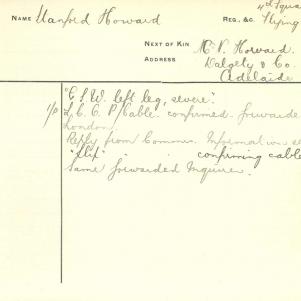 NAME Manfred Howard
REG., &C. 4th Squa
Flying
NEXT OF KIN Mr P. Howard.
ADDRESS Dalgety & Co.
Adelaide
"G.S.W. left leg, severe".
Cable confirmed. forwarde
London
Reply from Commn. Information
confirming cable
Same forwarded Inquirer.